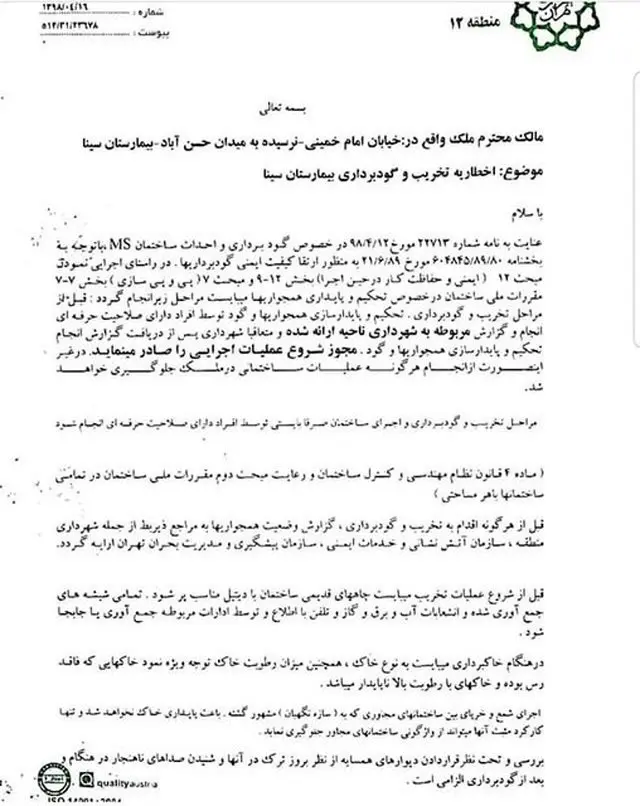 ۱۳۹۸/۰۴/۱۶
شماره :
۵۱۲/۳۱/۲۳۶۷۸
پیوست :
منطقه ۱۲
بسمه تعالی
مالک محترم ملک واقع در:خیابان امام خمینی-نرسیده به میدان حسن آباد-بیمارستان سینا
موضوع: اخطاریه تخریب و گودبرداری بیمارستان سینا
با سلام
عنایت به نامه شماره ۲۲۷۱۳ مورخ ۹۸/۴/۱۲ در خصوص گود برداری و احداث ساختمان MS ،باتوجه به
بخشنامه ۶۰۴۸۴۵/۸۹/۸۰ مورخ ۲۱/۶/۸۹ به منظور ارتقا کیفیت ایمنی گودبرداریها . در راستای اجرایی نمودن
مبحث ۱۲ ( ایمنی و حفاظت کار درحین اجرا) بخش ۱۲-۹ و مبحث ۷ ( پی و پی سازی ) بخش ۷-۷
مقررات ملی ساختمان درخصوص تحکیم و پایداری همجواریها میبایست مراحل زیرانجام گردد : قبل از
مراحل تخریب و گودبرداری . تحکیم و پایدارسازی همجواریها و گود توسط افراد دارای صلاحیت حرفه ای
انجام و گزارش مربوطه به شهرداری ناحیه ارائه شده و متعاقبا شهرداری پس از دریافت گزارش انجام
تحکیم و پایدارسازی همجواریها و گود . مجوز شروع عملیات اجرایی را صادر مینماید. درغیر
اینصورت ازانجام هرگونه عملیات ساختمانی درملک جلوگیری خواهد
شد.
مراحل تخریب و گودبرداری و اجرای ساختمان صرفا بایستی توسط افراد دارای صلاحیت حرفه ای انجام شود
( ماده ۴ قانون نظام مهندسی و کنترل ساختمان و رعایت مبحث دوم مقررات ملی ساختمان در تمامی
ساختمانها باهر مساحتی )
قبل از هرگونه اقدام به تخریب و گودبرداری ، گزارش وضعیت همجواریها به مراجع ذیربط از جمله شهرداری
منطقه ، سازمان آتش نشانی و خدمات ایمنی ، سازمان پیشگیری و مدیریت بحران تهران ارایه گردد.
قبل از شروع عملیات تخریب میبایست چاههای قدیمی ساختمان با دیتیل مناسب پر شود . تمامی شیشه های
جمع آوری شده و انشعابات آب و برق و گاز و تلفن با اطلاع و توسط ادارات مربوطه جمع آوری یا جابجا
شود .
درهنگام خاکبرداری میبایست به نوع خاک ، همچنین میزان رطوبت خاک توجه ویژه نمود خاکهایی که فاقد
رس بوده و خاکهای با رطوبت بالا ناپایدار میباشد .
اجرای شمع و خرپای بین ساختمانهای مجاوری که به ( سازه نگهبان ) مشهور گشته . باعث پایداری خاک نخواهد شد و تنها
کارکرد مثبت آنها میتواند از واژگونی ساختمانهای مجاور جلوگیری نماید .
بررسی و تحت نظرقراردادن دیوارهای همسایه از نظر بروز ترک در آنها و شنیدن صداهای ناهنجار در هنگام و
بعد ازگودبرداری الزامی است .
qualityaustria
ISO 14001:2004